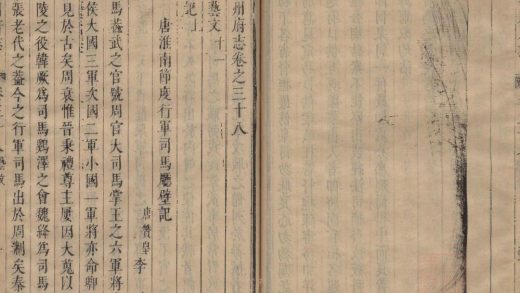 州府志卷之三十八
藝文十一
記
唐淮南節度行軍司馬廳壁記
唐贊皇李
馬蓋武之官號周官大司馬掌王之六軍將
侯大國三軍次國二軍小國一軍將亦命卿
見於古矣周衰惟晉秉禮尊主屢因大蒐以
陵之役韓厥爲司馬鷄澤之會魏絳爲司馬
張老代之蓋今之行軍司馬出於周制矣秦